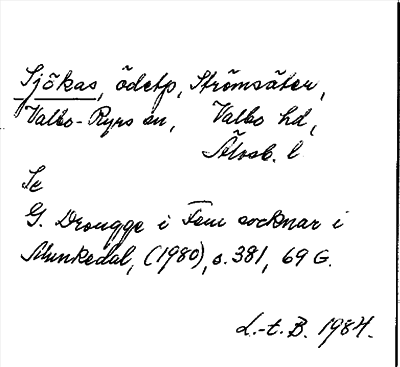 Sjökas, ödetp, Strömsäter,
Valbo-Ryrs sn, Valbo hd,
Älvsb. l
Se
G. Drougge i Fem socknar i
Munkedal, (1980), s. 381, 69 G.
L.-t. B. 1984.